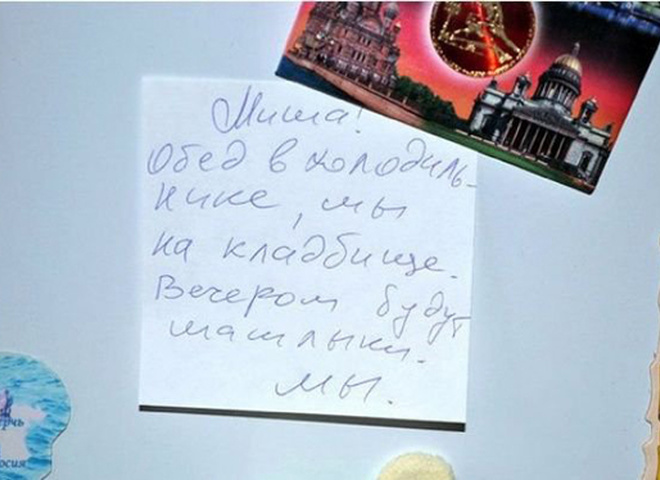 Миша!
Обед в холодиль-
нике, мы
на кладбище.
Вечером будут
шашлыки.
мы.